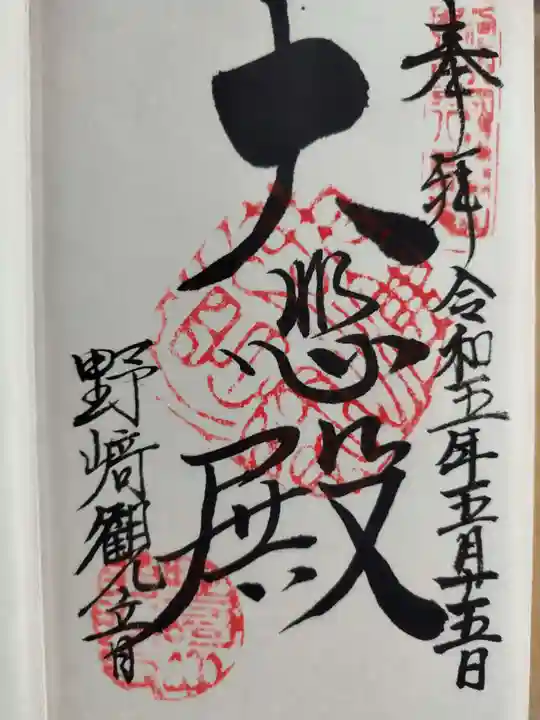 奉拝 令和五年五月十五日
大悲殿
野﨑観音